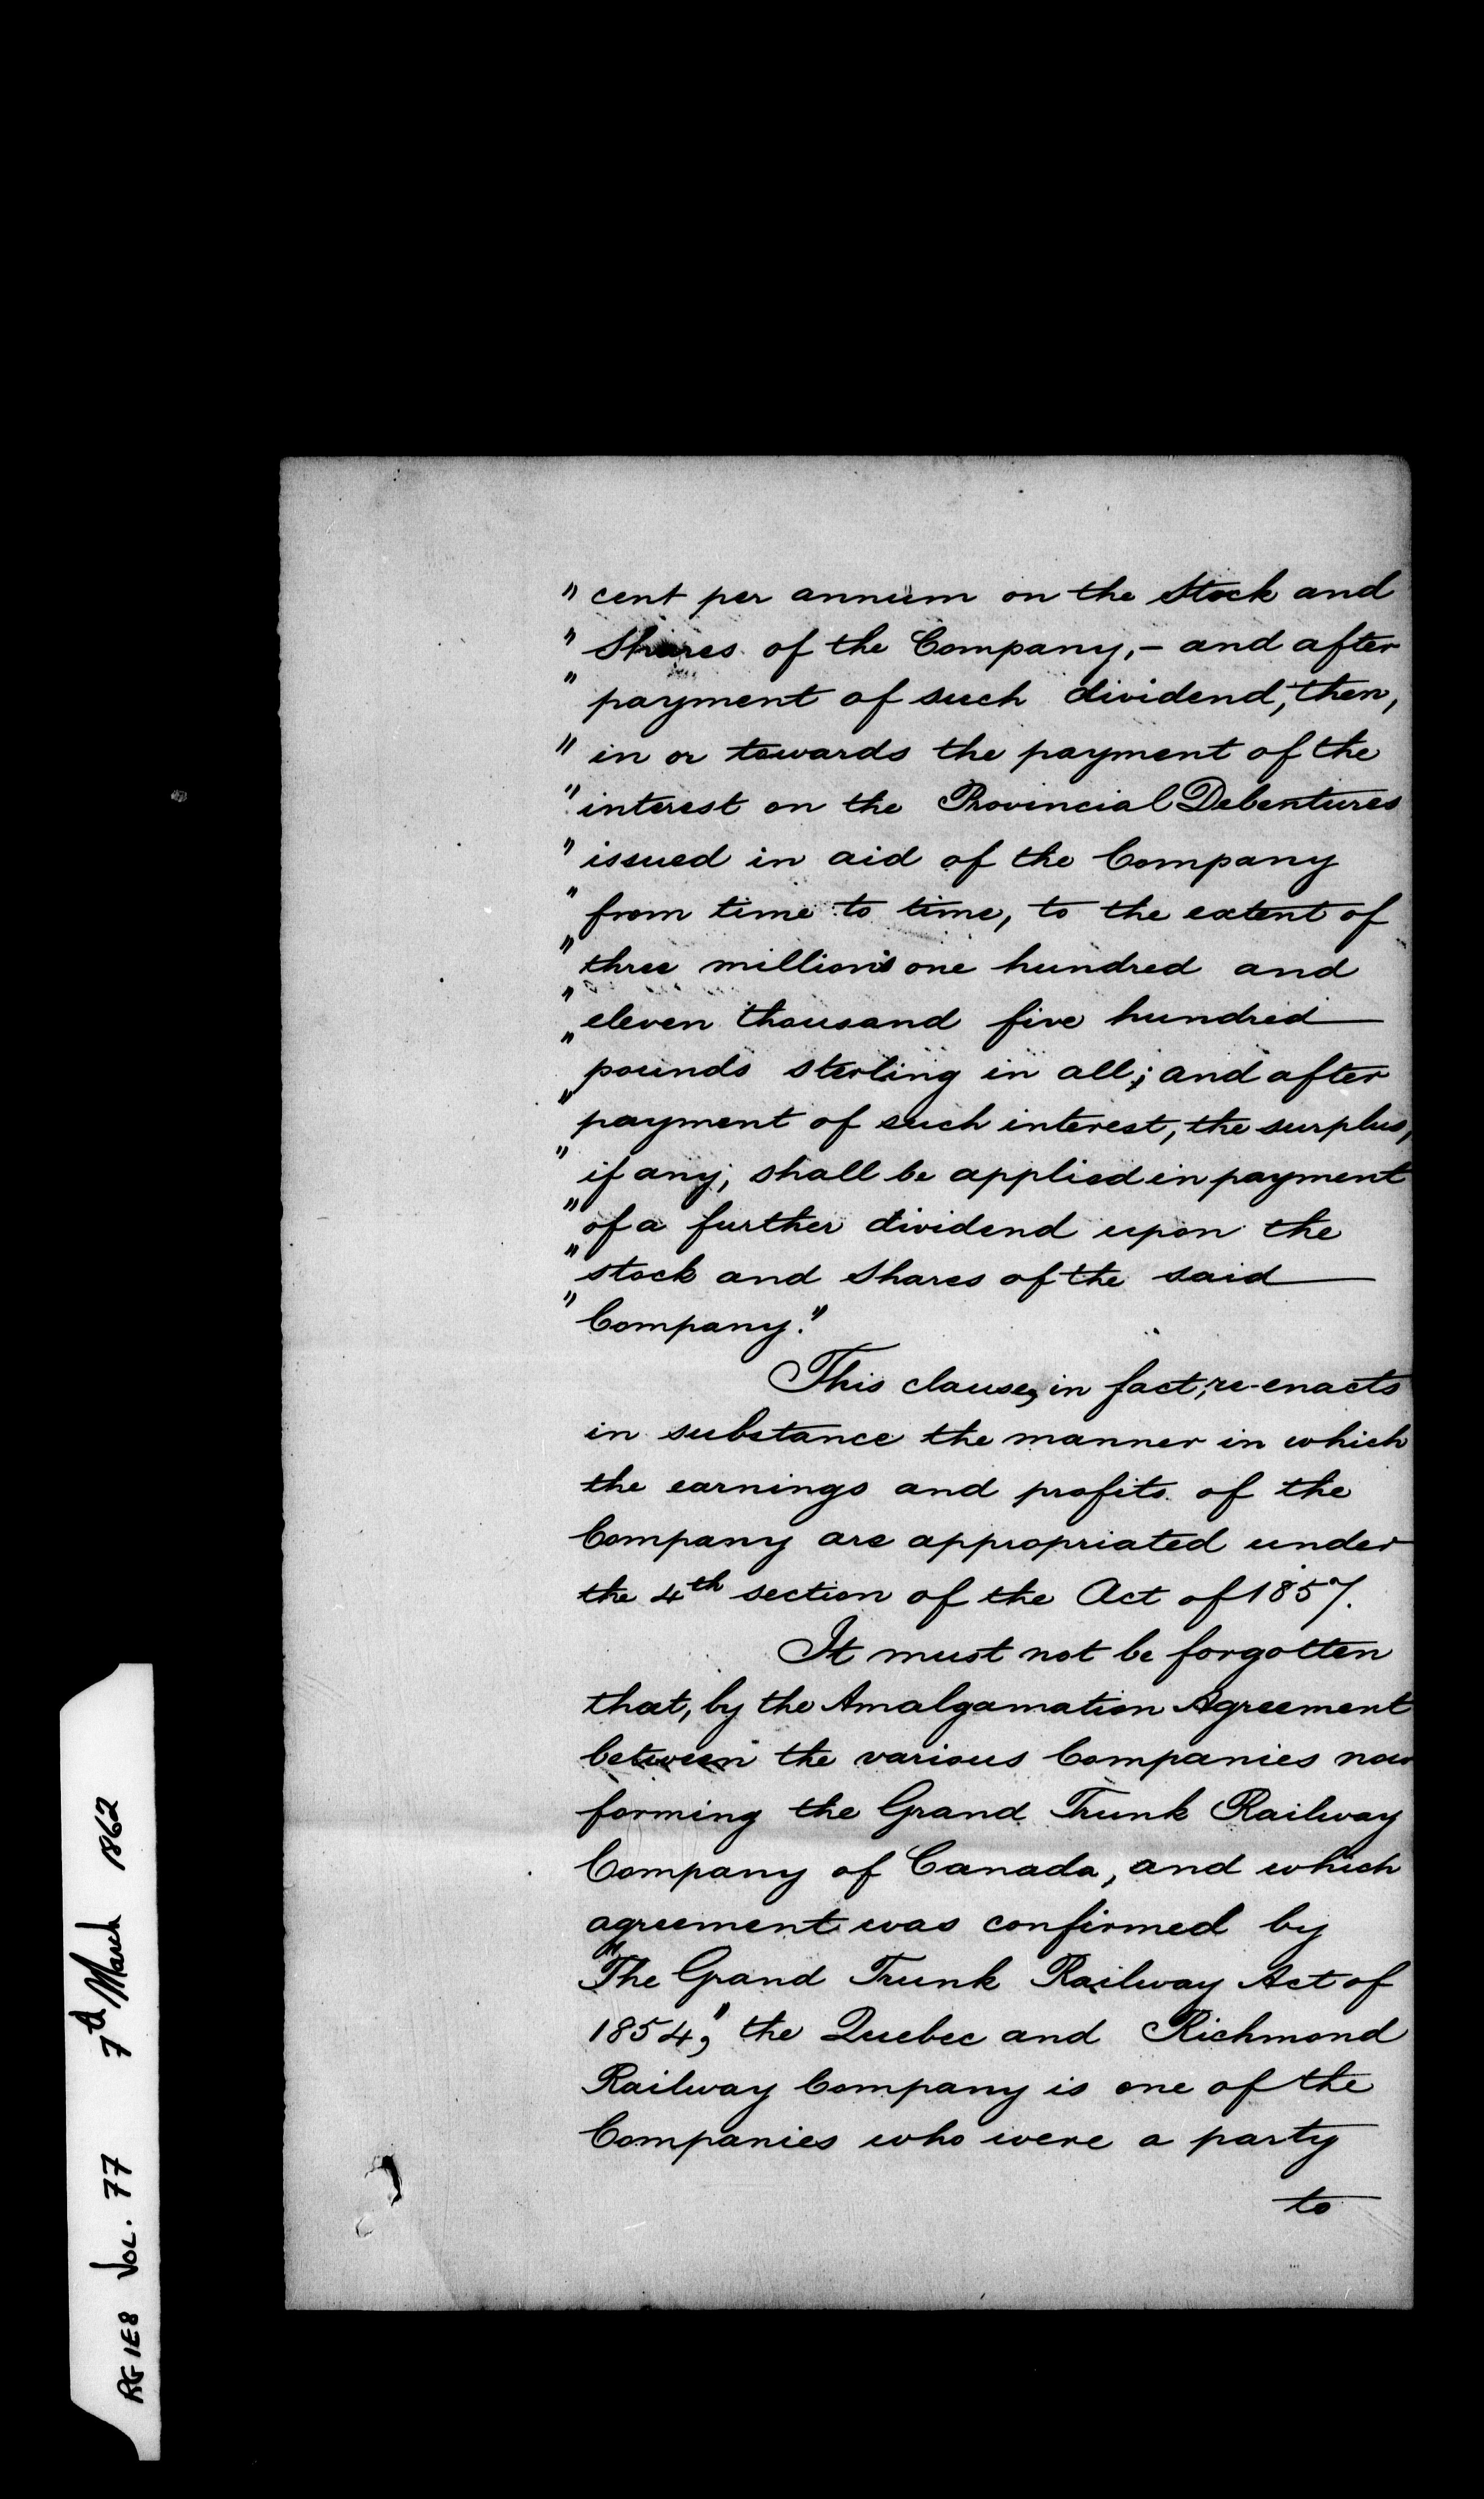 " cent per annum on the Stock and
" Shares of the Company,- and after
" payment of such dividend, then,
" in or towards the payment of the
" interest on the Provincial Debentures
" issued in aid of the Company
" from time to time, to the extent of
" three millions one hundred and
" eleven thousand five hundred
" pounds sterling in all; and after
" payment of such interest, the surplus,
" if any, shall be applied in payment
" of a further dividend upon the
" stock and Shares of the said
" Company."
This clause, in fact, re-enacts
in substance the manner in which
the earnings and profits of the
Company are appropriated under
the 4th section of the Act of 1857.
It must not be forgotten
that, by the Amalgamation Agreement
between the various Companies now
forming the Grand Trunk Railway
Company of Canada, and which
agreement was confirmed by
"The Grand Trunk Railway Act of
1854," the Quebec and Richmond
Railway Company is one of the
Companies who were a party
to
RG 1E8 VOL. 77 7th March 1862